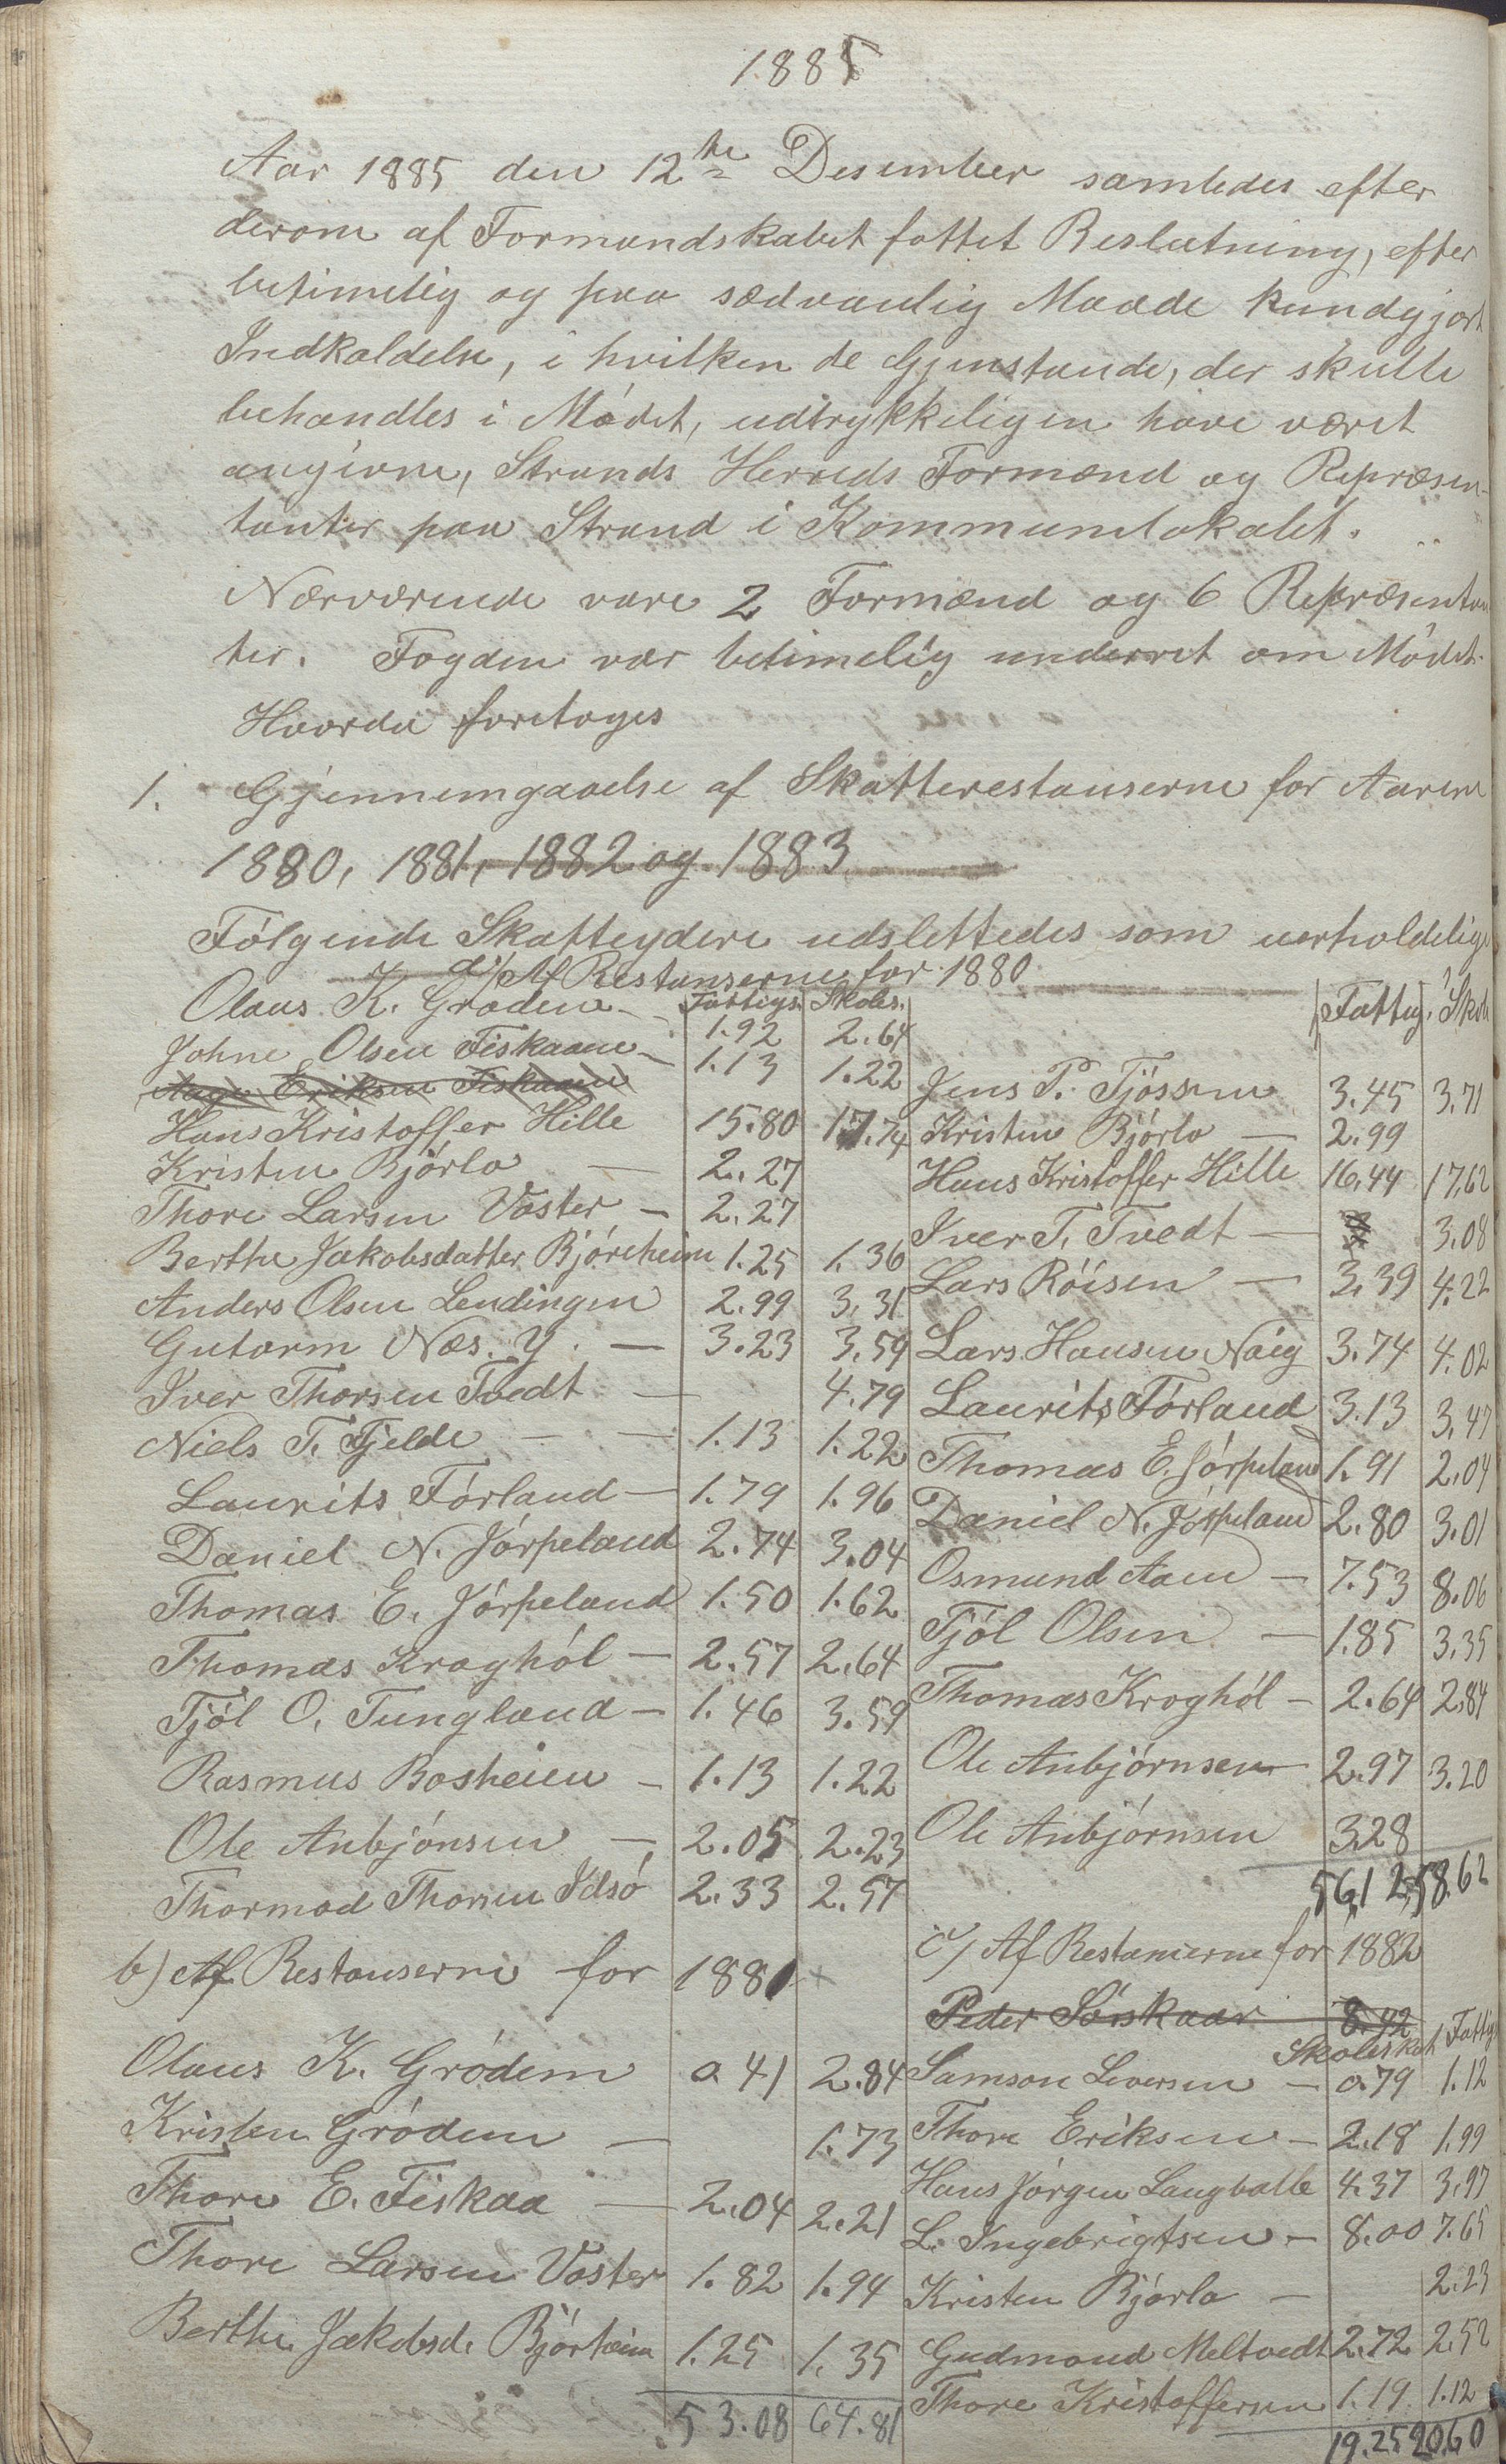 1885
Aar 1885 den 12te Desember samledes efter
derom af Formandskabet fattet Beslutning, efter
betimelig og paa sædvanlig Maade kundgjort
Indkaldelse, i hvilken de Gjenstande, der skulle
behandles i Mødet, udtrykkeligen have været
angivne, Strands Herreds Formænd og Repræsen-
tanter paa Strand i Kommunelokalet.
Nærværende vare 2 Formænd og 6 Repræsentan
ter. Fogden var betimelig underret om Mødet.
Hvorda foretoges
1. Gjennemgaaelse af Skatterestanserne for Aarene
1880, 1881, 1882 og 1883
Følgende Skatteydere udslettedes som uerholdelige
a/ Af Restanserne for 1880
Fattigs. Skoles.
Olaus K. Grødem 1.92 2.64
Johne Olsen Fiskaaen 1.13 1.22
Aage Eriksen Fiskaaen
Hans Kristoffer Hille 15.80 17.74
Kristen Bjørlo 2.27
Thore Larsen Voster 2.27
Berthe Jakobsdatter Bjøreheim 1.25 1.36
Anders Olsen Lendingen 2.99 3.31
Gutorm Næs. Y. 3.23 3.59
Iver Thorsen Tvedt 4.79
Niels T. Fjelde 1.13 1.22
Laurits Førland 1.79 1.96
Daniel N. Jørpeland 2.74 3.04
Thomas E. Jørpeland 1.50 1.62
Thomas Kroghøl 2.57 2.64
Tjøl O. Tungland 1.46 3.59
Rasmus Bosheien 1.13 1.22
Ole Anbjønsen 2.05 2.23
Thormod Thorsen Idsø 2.33 2.57
b) Af Restanserne for 1881
Olaus K. Grødem 0.41 2.84
Kristen Grødem 1.73
Thore E. Fiskaa 2.04 2.21
Thore Larsen Voster 1.82 1.94
Berthe Jakobsd. Bjørheim 1.25 1.35
53.08 64.81
Fattig. Skole
Jens P. Tjøssem 3.45 3.71
Kristen Bjørlo 2.99
Hans Kristoffer Hille 16.44 17.62
Iver T. Tvedt 3.08
Lars Røisen 3.39 4.22
Lars Hansen Naig 3.74 4.02
Laurits Førland 3.13 3.47
Thomas E. Jørpeland 1.91 2.04
Daniel N. Jørpeland 2.80 3.01
Osmund Aaen 7.53 8.06
Tjøl Olsen 1.85 3.35
Thomas Kroghøl 2.64 2.84
Ole Anbjørnsen 2.97 3.20
Ole Anbjørnsen 3.28
56.12 58.62
c/ Af Restanserne for 1882
Peder Sørskaar 8.42
Skoleskat Fattig
Samson Iversen 0.79 1.12
Thore Eriksen 2.18 1.99
Hans Jørgen Langballe 4.37 3.97
L. Ingebrigtsen 8.00 7.65
Kristen Bjørlo 2.23
Gudmund Meltvedt 2.72 2.52
Thore Kristoffersen 1.19 1.12
19.25 20.60